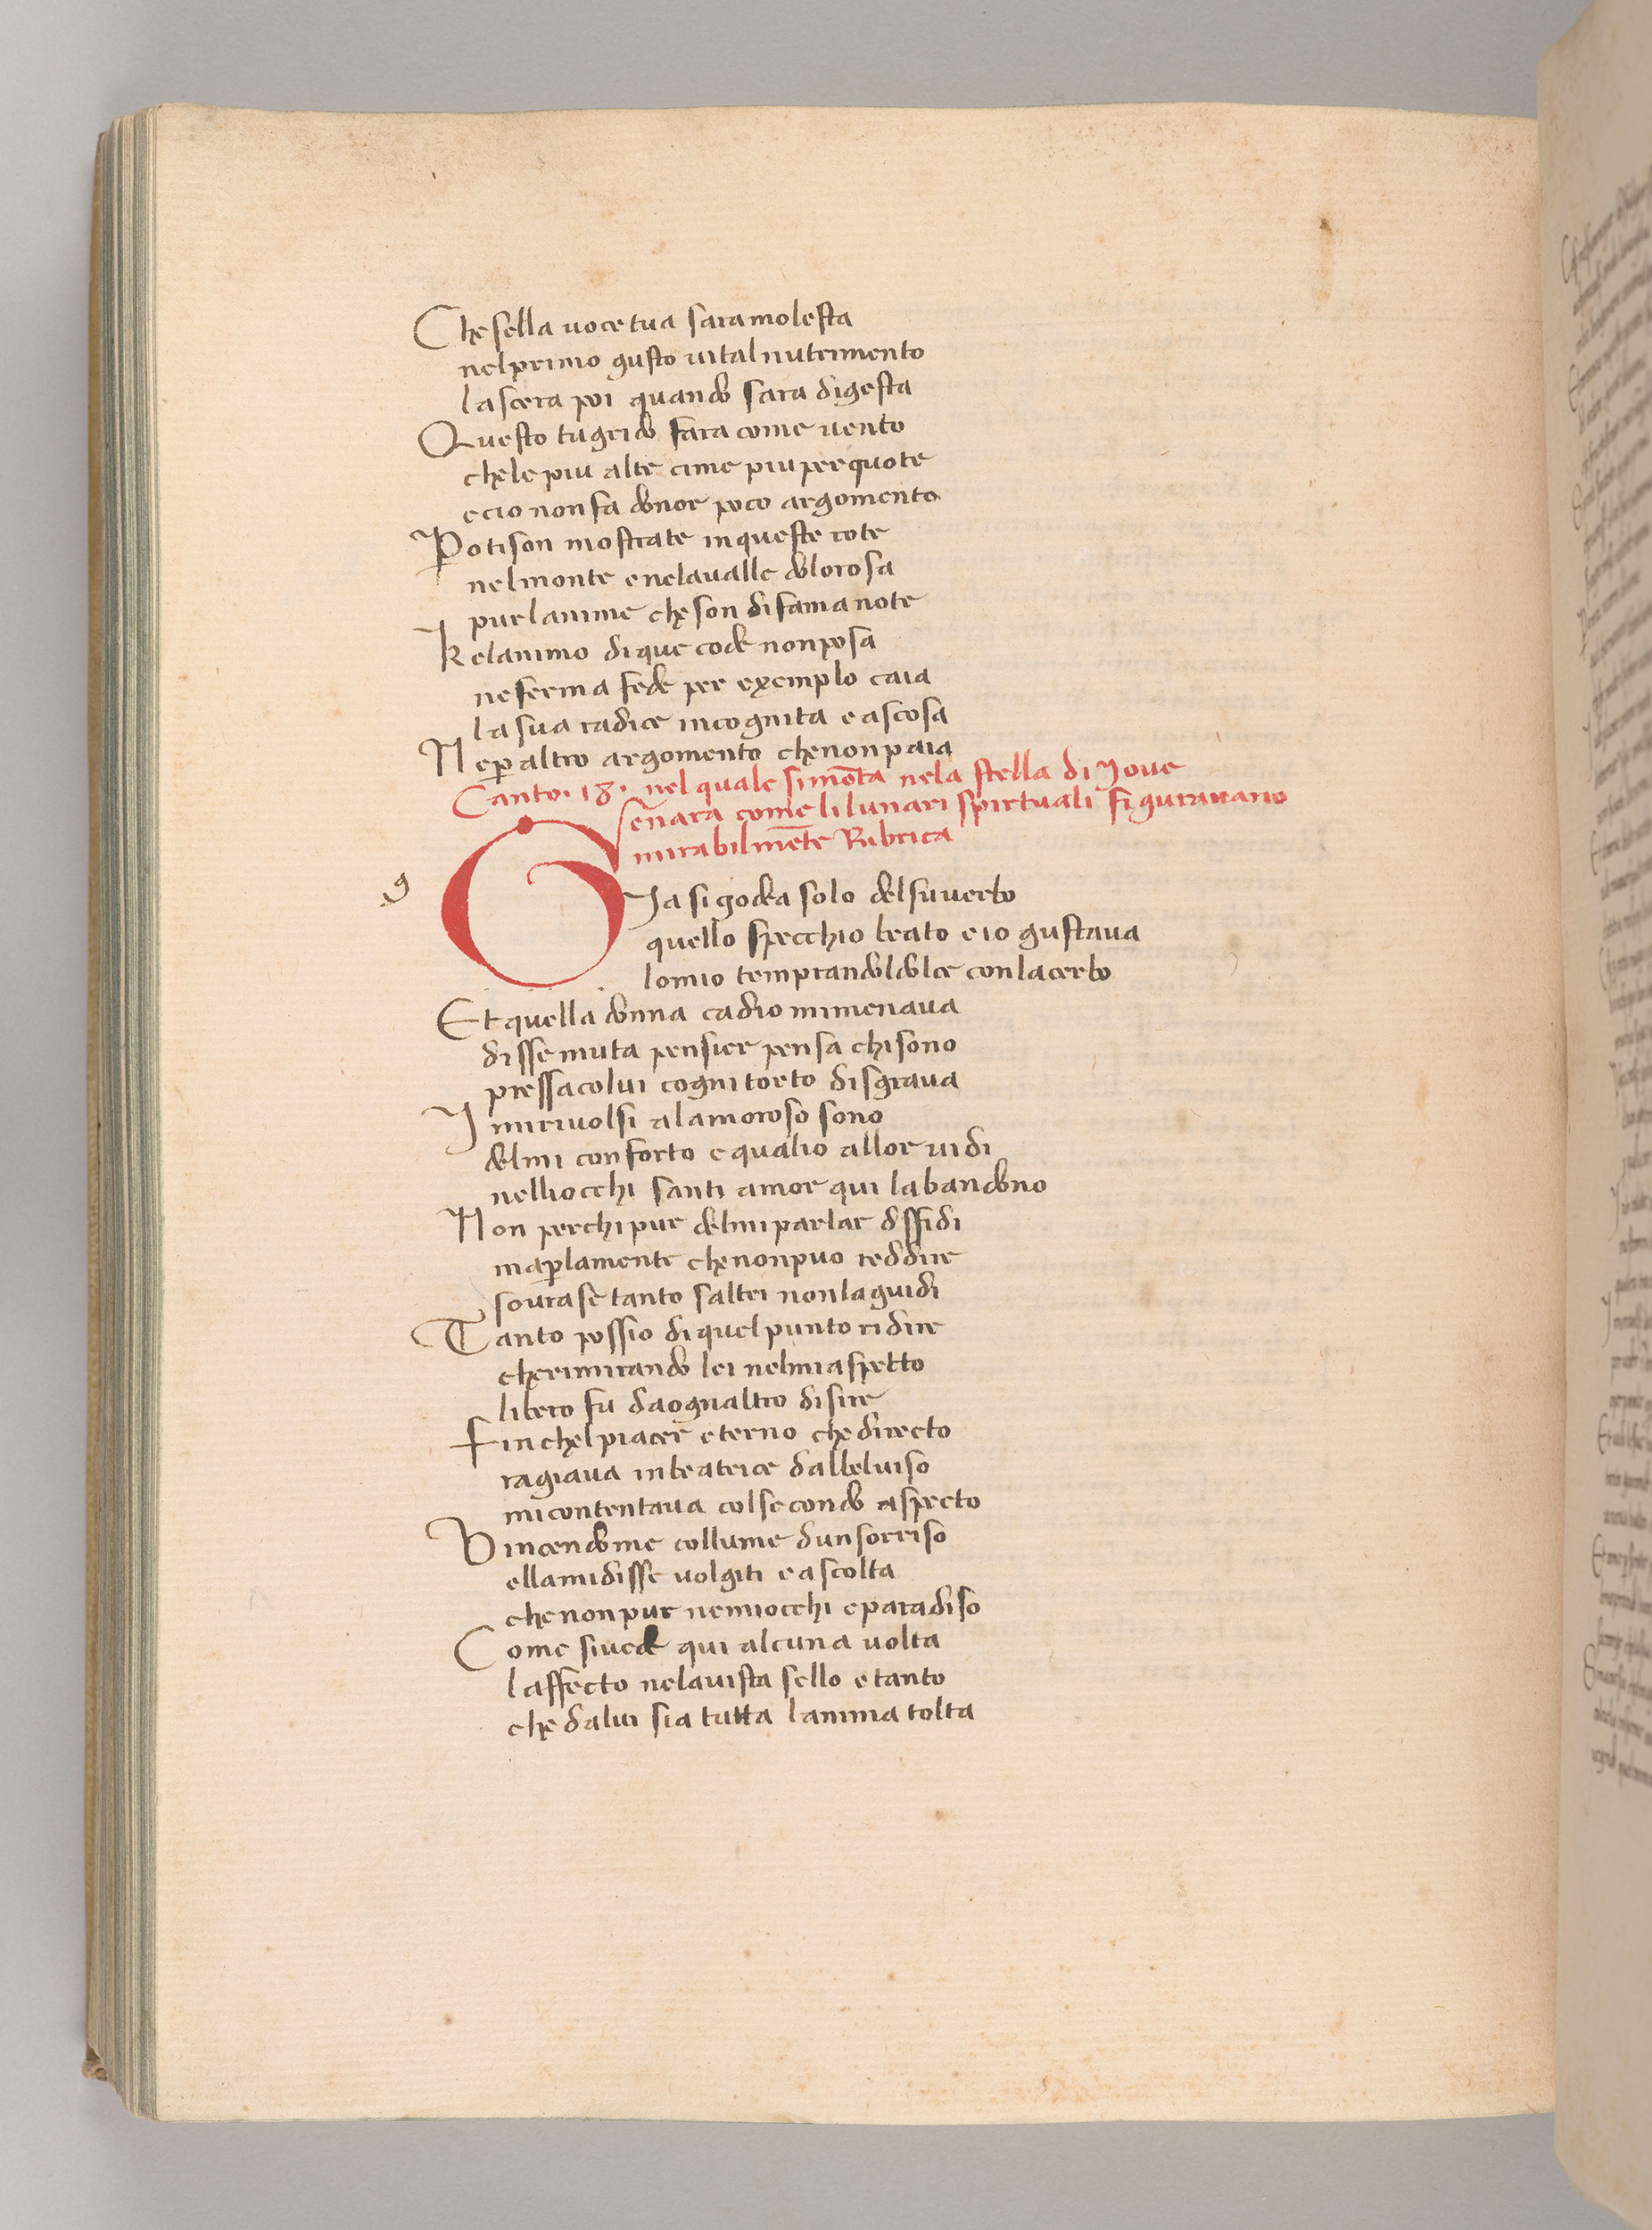 Che sella uoce tua sara molesta
nel primo gusto uital nutrimento
lascera poi quando sara digesta
Questo tu grido fara come uento
che le piu alte cime piu perquote
e cio non fa donor poco argomento
Poti son mostrate in queste rote
nel monte e nela ualle dolorosa
pur lanime che son di fama note
K elanimo di que code non posa
ne ferma fede per exemplo caia
la sua radice incognita e ascosa
Ne per altro argomento che non paia
Canto .18. nel quale si mōta nela stella di Joue
e nara come li lunari spirtuali figurauano
mirabilmēte Rubrica
g
Gia si godea solo del su uerbo
quello specchio beato e io gustaua
lo mio temprandol dolce con lacerbo
Et quella donna cadio mi menaua
disse muta pensier pensa chi sono
pressa colui cogni torto disgraua
I mi riuolsi alamoroso sono
del mi conforto e qualio allor uidi
nelli occhi santi amor qui labandono
Non perchi pur del mi parlar diffidi
ma per lamente che non puo reddire
soura se tanto saltri non la guidi
Tanto possio di quel punto ridire
che rimirando lei nel mi aspetto
libero fu da ognaltro disire
Fin chel piacer eterno che directo
ragiaua in beatrice dal bel uiso
mi contentaua col secondo aspecto
Vincendo me col lume dun sorriso
ella mi disse uolgiti e ascolta
che non pur ne miocchi e paradiso
Come si uede qui alcuna uolta
laffecto nela uista sello e tanto
che da lui sia tutta lanima tolta